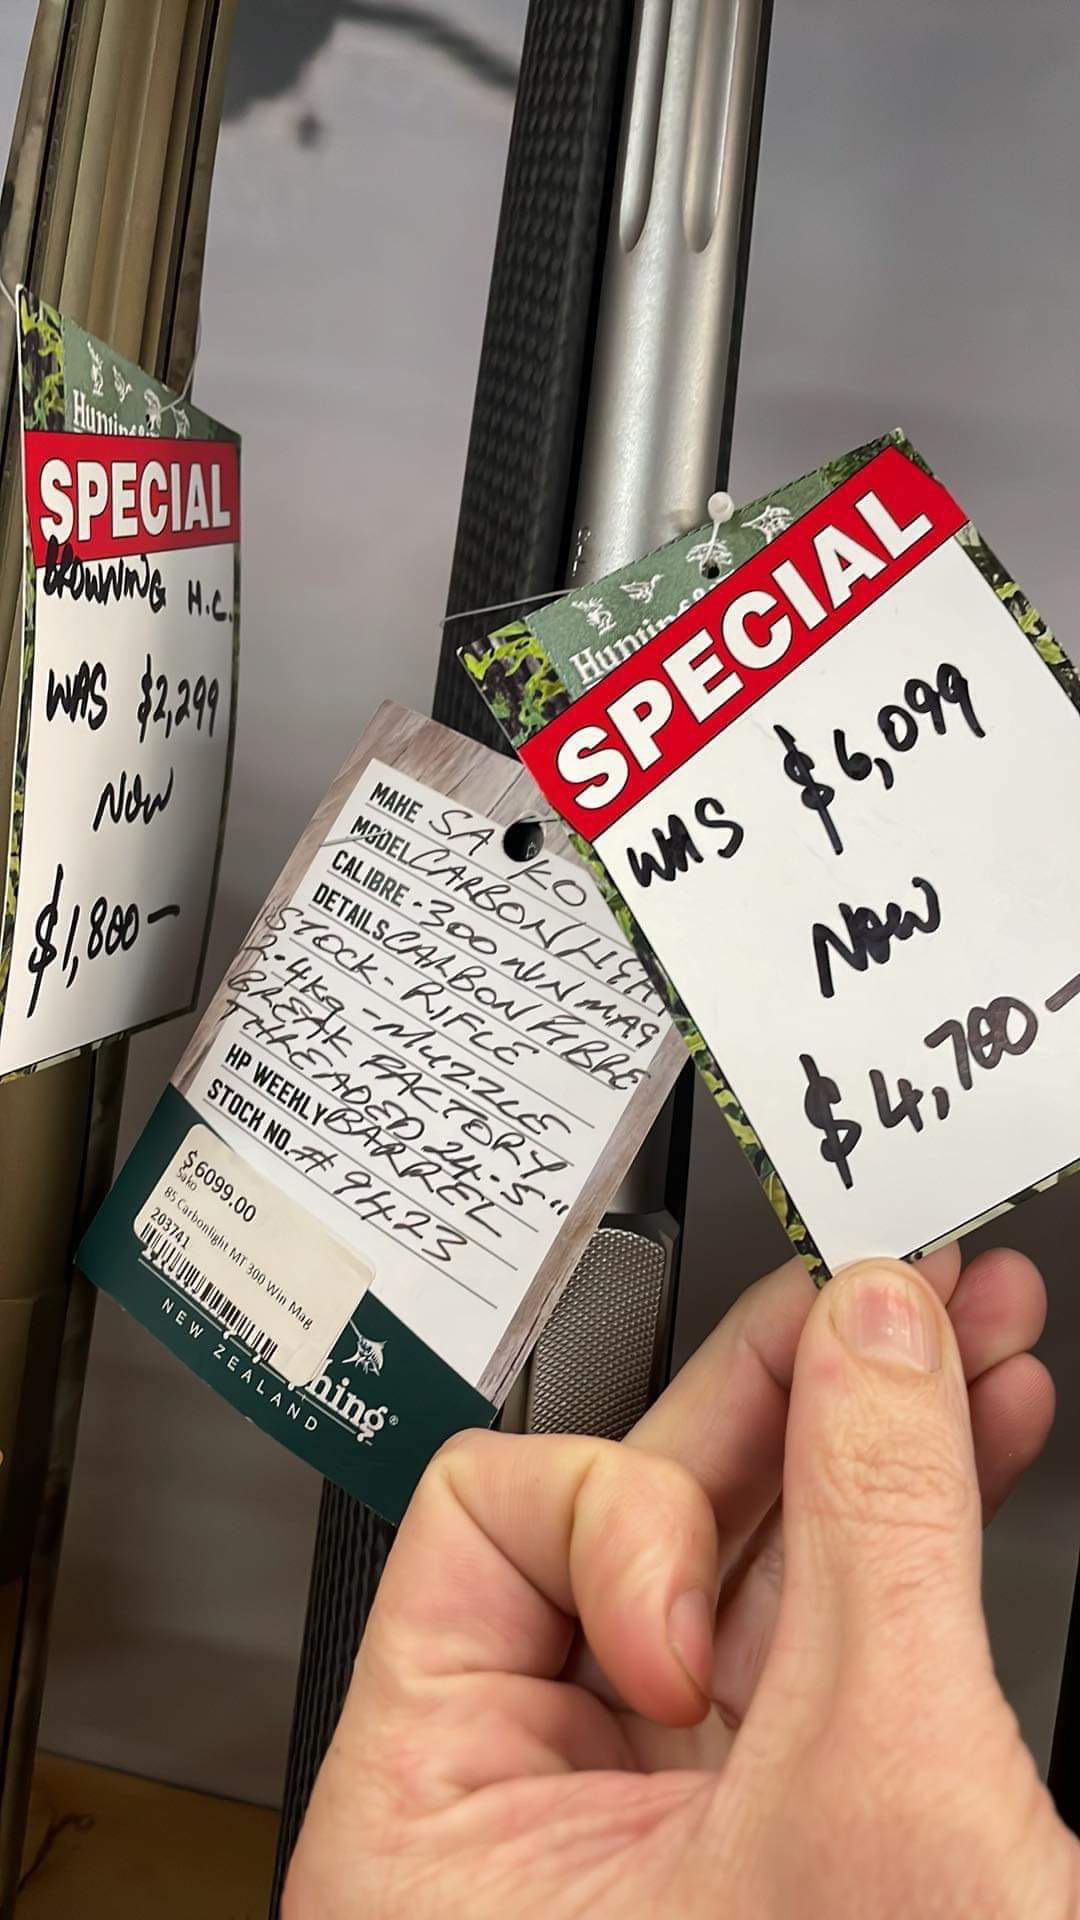 Hunting&
SPECIAL
BROWNING H.C.
WAS $2,299
NOW
$1,800—
Hunting&
SPECIAL
WAS $6,099
NOW
$4,700—
MAKE SAKO
MODEL CARBONLIGHT
CALIBRE - 300 WIN MAG
DETAILS CARBON FIBRE
STOCK - RIFLE
2.4kg - MUZZLE
BREAK FACTORY
THREADED 24.5"
HP WEEKLY BARREL
STOCK NO. # 9423
$6099.00
Sako
85 Carbonlight MT 300 Win Mag
203741
hing®
NEW ZEALAND